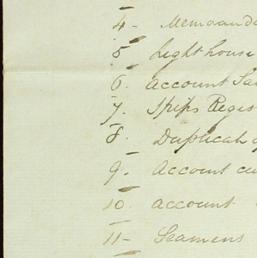 4. Memoranda
5 Light house
6. Account Sa
7. Ships Regis
8. Duplicate
9. Account cu
10. account
11 Seamens